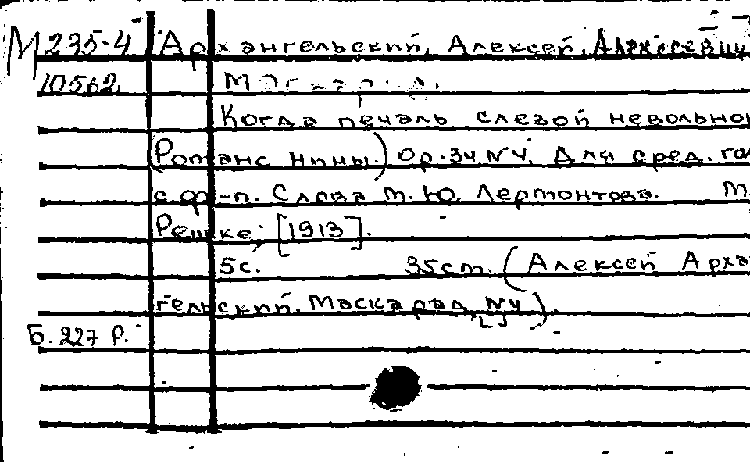 М235-4 Архангельский, Алексей Алексеевич
10562 Маскарад.
Когда печаль слезой невольно
(Романс Нины.) Ор.34 №4. Для сред. гол
с ф-п. Слова М.Ю. Лермонтова. М
[1913].
5с. 35cm. (Алексей Архан
гельский. Маскарад №4).
Б. 227 Р.